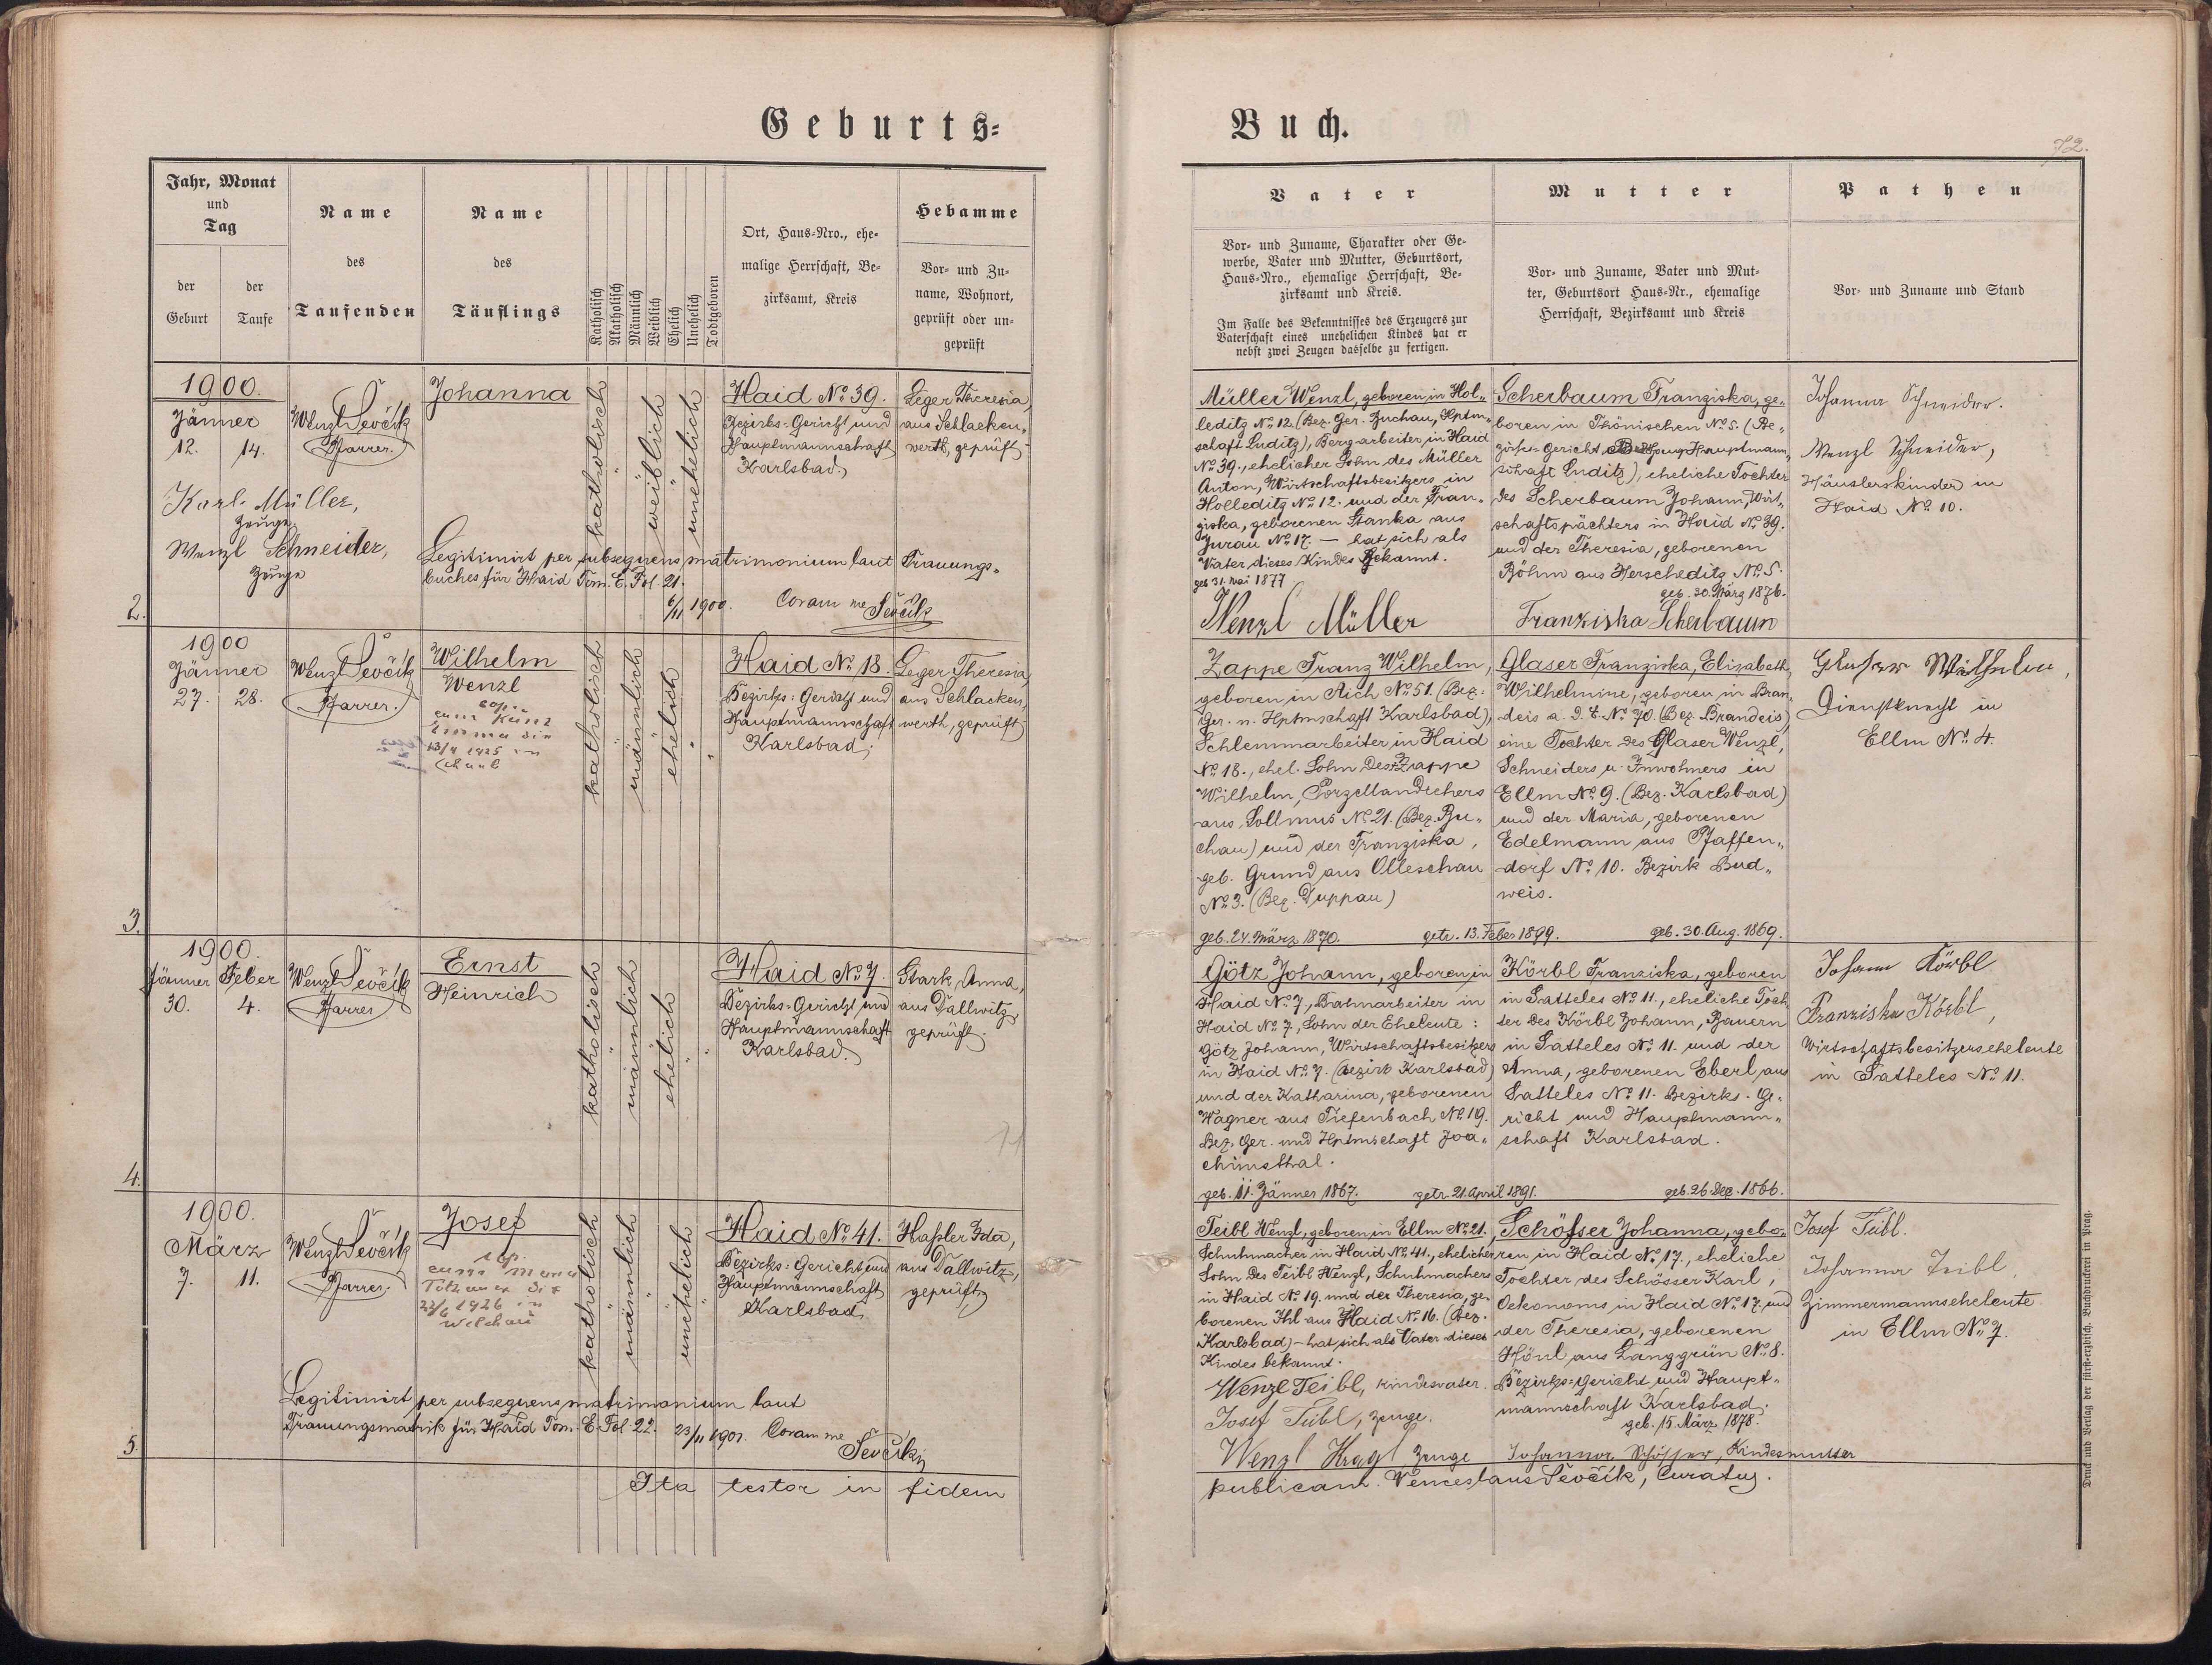 Geburts=
Jahr, Monat
und
Tag
der
Geburt
der
Taufe
Name
des
Taufenden
Name
des
Täuflings
Katholisch
Akatholisch
Männlich
Weiblich
Ehelich
Unehelich
Todtgeboren
Ort, Haus=Nro., ehe=
malige Herrschaft, Be=
zirksamt, Kreis
Hebamme
Vor= und Zu=
name, Wohnort,
geprüft oder un=
geprüft
1900.
Jänner
12. 14.
Wenzl Ševčík
Pfarrer.
Johanna
katholisch
weiblich
unehelich
Haid No. 39.
Bezirks=Gericht und
Hauptmannschaft
Karlsbad.
Leger Theresia,
aus Schlacken„
werth, geprüft
Karl Müller,
Zeuge.
Wenzl Schneider,
Zeuge
Legitimirt per subsequens matrimonium laut Trauungs„
buches für Haid Tom. E. Fol. 21.
6/II 1900. Coram me Ševčík
2.
1900
Jänner
27. 28.
Wenzl Ševčík
Pfarrer.
Wilhelm
Wenzl
cop.
cum Kunz
Emma die
13/4 1925 in
katholisch
männlich
ehelich
Haid No. 18.
Bezirks=Gericht und
Hauptmannschaft
Karlsbad;
Leger Theresia,
aus Schlacken„
werth, geprüft
3.
1900.
Jänner Feber
30. 4.
Wenzl Ševčík
Pfarrer
Ernst
Heinrich
katholisch
männlich
ehelich
Haid No. 7.
Bezirks=Gericht und
Hauptmannschaft
Karlsbad.
Stark Anna,
aus Dallwitz,
geprüft.
4.
1900.
März
7. 11.
Wenzl Ševčík
Pfarrer.
Josef
cop.
cum
die
22/6 1926 in
Welchau
katholisch
männlich
unehelich
Haid No. 41.
Bezirks=Gericht und
Hauptmannschaft
Karlsbad
Haßler Ida,
aus Dallwitz,
geprüft
Legitimirt per subsequens matrimonium laut
Trauungsmatrik für Haid Tom. E. Fol. 22. 23/II 1901. Coram me
Ševčík
5.
Ita testor in fidem
Buch.
72.
Vater
Vor= und Zuname, Charakter oder Ge=
werbe, Vater und Mutter, Geburtsort,
Haus=Nro., ehemalige Herrschaft, Be=
zirksamt und Kreis.
Im Falle des Bekenntnisses des Erzeugers zur
Vaterschaft eines unehelichen Kindes hat er
nebst zwei Zeugen dasselbe zu fertigen.
Mutter
Vor= und Zuname, Vater und Mut=
ter, Geburtsort Haus=Nr., ehemalige
Herrschaft, Bezirksamt und Kreis
Pathen
Vor= und Zuname und Stand
Müller Wenzl, geboren in Hol„
leditz No. 12. (Bez. Ger. Buchau, Hptm„
schaft Luditz), Bergarbeiter in Haid
No. 39., ehelicher Sohn des Müller
Anton, Wirtschaftsbesitzers in
Holleditz No. 12. und der Fran„
ziska, geborenen Stanka aus
Jurau No. 17. — hat sich als
Vater dieses Kindes bekannt.
geb 31. Mai 1877
Wenzl Müller
Scherbaum Franziska, ge„
boren in Thönischen No. 5. (Be„
zirks=Gericht Hauptmann„
schaft Luditz), eheliche Tochter
des Scherbaum Johann, Wirt„
schaftspächters in Haid No. 39.
und der Theresia, geborenen
Böhm aus Herscheditz No. 5.
geb. 30. März 1876.
Franziska Scherbaum
Johanna Schneider.
Wenzl Schneider,
Häuslerskinder in
Haid No. 10.
Zappe Franz Wilhelm,
geboren in Aich No. 51. (Bez.
Ger. u. Hptmschaft Karlsbad),
Schlemmarbeiter in Haid
No. 18., ehel. Sohn des Zappe
Wilhelm, Porzellandrehers
aus Sollmus No. 21. (Bez. Bu„
chau) und der Franziska,
geb. Grund aus Olleschau
No. 3. (Bez. Duppau)
geb. 24. März 1870. getr. 13. Feber 1899.
Glaser Franziska, Elisabeth,
Wilhelmine, geboren in Bran„
deis a. d. E. No. 70. (Bez. Brandeis),
eine Tochter des Glaser Wenzl,
Schneiders u. Inwohners in
Ellm No. 9. (Bez. Karlsbad)
und der Maria, geborenen
Edelmann aus Pfaffen„
dorf No. 10. Bezirk Bud„
weis.
geb. 30. Aug. 1869.
Glaser Wilhelm,
Dienstknecht in
Ellm No. 4.
Götz Johann, geboren in
Haid No. 7., Bahnarbeiter in
Haid No. 7, Sohn der Eheleute:
Götz Johann, Wirtschaftsbesitzers
in Haid No. 7. (Bezirk Karlsbad)
und der Katharina, geborenen
Wagner aus Tiefenbach No. 19.
Bez. Ger. und Hptmschaft Joa„
chimsthal.
geb. 11. Jänner 1867. getr. 21. April 1891.
Körbl Franziska, geboren
in Satteles No. 11., eheliche Toch„
ter des Körbl Johann, Bauern
in Satteles No. 11. und der
Anna, geborenen Eberl aus
Satteles No. 11. Bezirks=Ge„
richt und Hauptmann„
schaft Karlsbad.
geb. 26. Dez. 1866.
Johann Körbl
Franziska Körbl,
Wirtschaftsbesitzerseheleute
in Satteles No. 11.
Teibl Wenzl, geboren in Ellm No. 21.,
Schuhmacher in Haid No. 41., ehelicher
Sohn des Teibl Wenzl, Schuhmachers
in Haid No. 19. und der Theresia, ge„
borenen Ihl aus Haid No. 16. (Bez.
Karlsbad) – hat sich als Vater dieses
Kindes bekannt.
Wenzl Teibl, Kindesvater.
Josef Teibl, Zeuge.
Wenzl Kragl, Zeuge
Schösser Johanna, gebo„
ren in Haid No. 17., eheliche
Tochter des Schösser Karl,
Oekonoms in Haid No. 17. und
der Theresia, geborenen
Hönl aus Langgrün No. 8.
Bezirks=Gericht und Haupt„
mannschaft Karlsbad.
geb. 15. März 1878.
Johanna Schösser, Kindesmutter
Josef Teibl.
Johanna Teibl,
Zimmermannseheleute
in Ellm No. 7.
publicam. Venceslaus Ševčík, Curatus.
Druck und Verlag der fürst=erzbisch. Buchdruckerei in Prag.